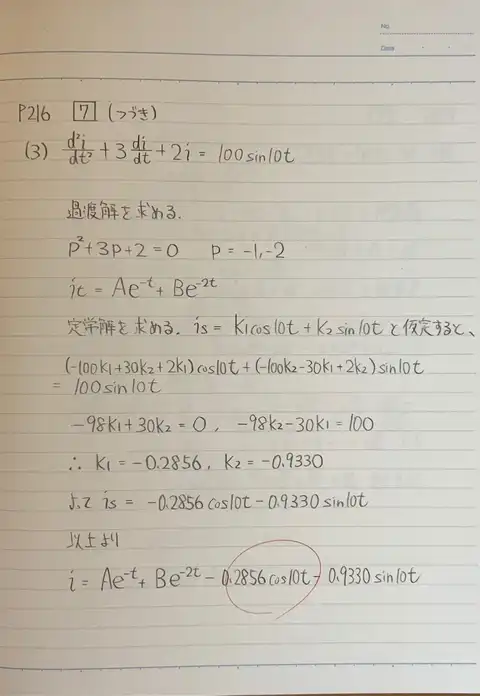 No.
Date
P216 [7] (つづき)
(3) d²i/dt² + 3 di/dt + 2i = 100 sin10t
過渡解を求める.
p²+3p+2=0 p=-1,-2
it = Ae^-t + Be^-2t
定常解を求める. is = K1cos10t + K2 sin10t と仮定すると、
(-100K1+30K2+2K1)cos10t+(-100K2-30K1+2K2)sin10t
= 100sin10t
-98K1+30K2=0, -98K2-30K1=100
∴ K1=-0.2856, K2=-0.9330
よって is = -0.2856cos10t-0.9330sin10t
以上より
i = Ae^-t + Be^-2t - 0.2856cos10t - 0.9330sin10t